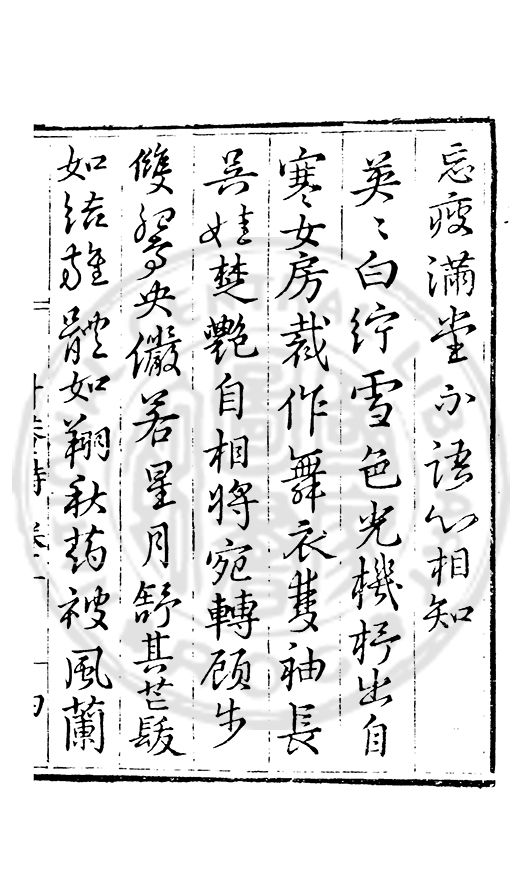 忘疲滿堂不語心相知
英〻白紵雪色光機杼出自
寒女房裁作舞衣雙袖長
吳娃楚艷自相將宛轉顧步
雙鴛央儼若星月舒其芒鬆
如結離體如翔秋菊被風蘭